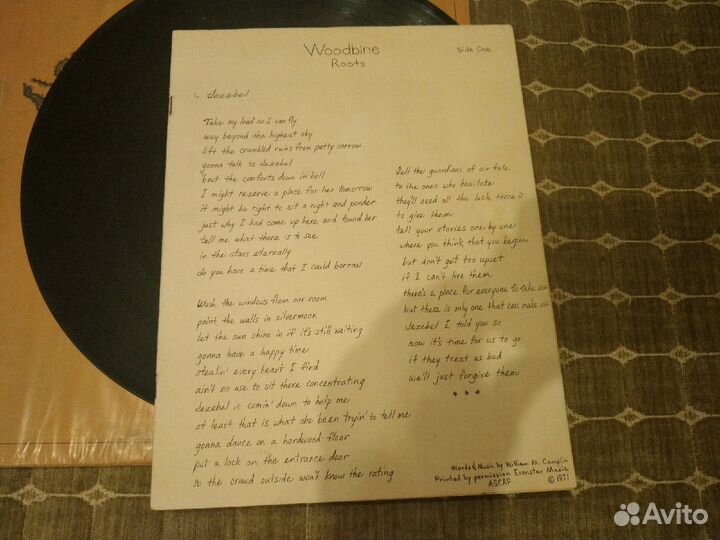 Woodbine
Roots
Side One
1. Jezebel
Take my load so I can fly
way beyond the highest sky
lift the crumbled ruins from petty sorrow
gonna talk to Jezebel
'bout the comforts down in hell
I might reserve a place for her tomorrow
it might be right to sit a night and ponder
just why I had come up here and found her
tell me what there is to see
in the stars eternally
do you have a time that I could borrow
Wash the windows from our room
paint the walls in silvermoon
let the sun shine in if it's still waiting
gonna have a happy time
stealin' every heart I find
ain't no use to sit there concentrating
Jezebel is comin' down to help me
at least that is what she been tryin' to tell me
gonna dance on a hardwood floor
put a lock on the entrance door
so the crowd outside won't know the rating
Sell the guardians of our fate
to the ones who hesitate
they'll need all the luck there is
to give them
tell your stories one by one
where you think that you begun
but don't get too upset
if I can't live them
there's a place for everyone to take
but there is only one that can make
Jezebel I told you so
now it's time for us to go
if they treat us bad
we'll just forgive them
* * *
Words & Music by William M. Camplin
Printed by permission Evenstar Music
ASCAP © 1971
Avito